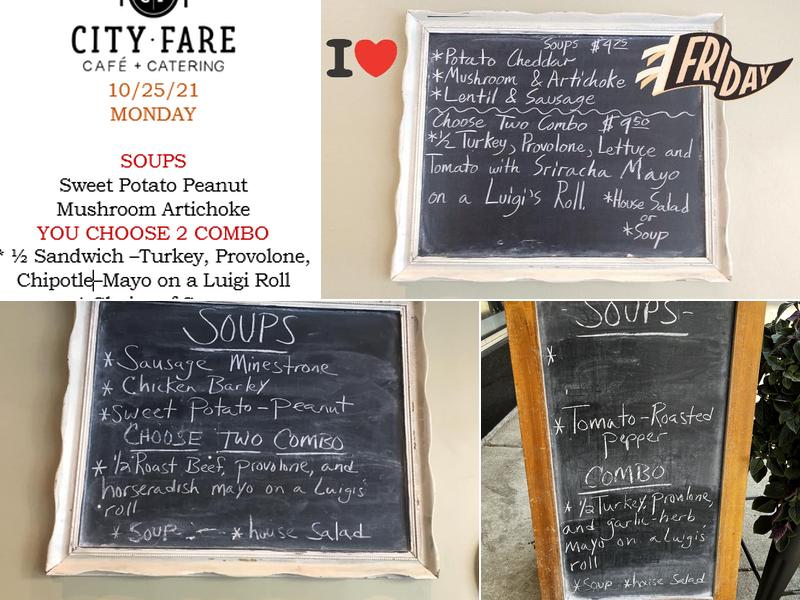 CITY·FARE
CAFÉ + CATERING
10/25/21
MONDAY
SOUPS
Sweet Potato Peanut
Mushroom Artichoke
YOU CHOOSE 2 COMBO
* ½ Sandwich –Turkey, Provolone,
Chipotle–Mayo on a Luigi Roll
I
FRIDAY
Soups $4.25
*Potato Cheddar
*Mushroom & Artichoke
*Lentil & Sausage
Choose Two Combo $9.50
*½ Turkey, Provolone, Lettuce and
Tomato with Sriracha Mayo
on a Luigi's Roll. *House Salad
or
*Soup
SOUPS
* Sausage Minestrone
* Chicken Barley
*Sweet Potato-Peanut
CHOOSE TWO COMBO
* ½ Roast Beef, provolone, and
horseradish mayo on a Luigis'
roll
* SOUP - * house Salad
-SOUPS-
*
* Tomato-Roasted
pepper
COMBO
* ½ Turkey, Provolone,
and garlic-herb
mayo on a Luigis'
roll
*Soup *house Salad